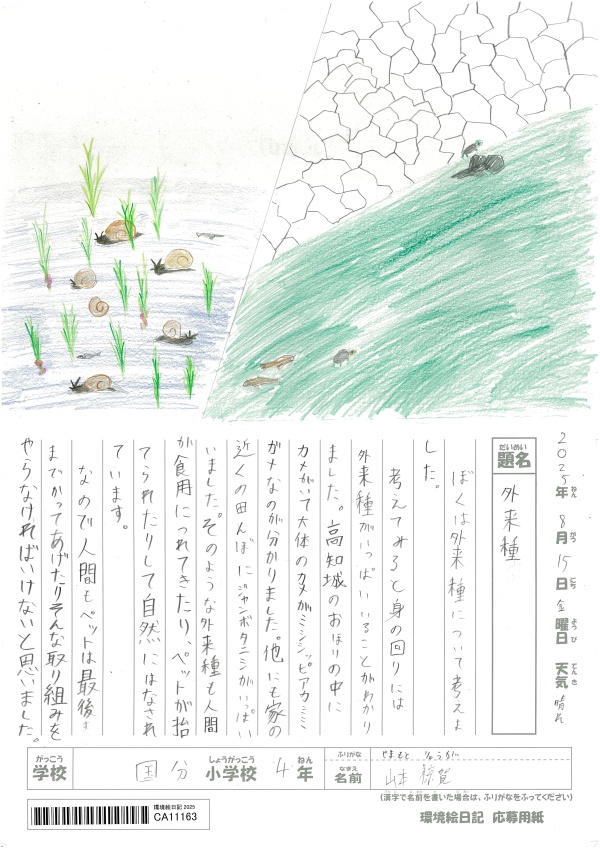 2025年ねん 8月がつ 15日にち 金曜日ようび 天気てんき 晴れ
題名だいめい 外来種
ぼくは外来種について考えま
した。
考えてみると身の回りには
外来種がいっぱいいることがわかり
ました。高知城のおほりの中に
カメがいて大体のカメがミシシッピアカミミ
ガメなのが分かりました。他にも家の
近くの田んぼにジャンボタニシがいっぱい
いました。そのような外来種も人間
が食用につれてきたり、ペットが捨
てられたりして自然にはなされ
ています。
なので人間もペットは最後ま
までかってあげたりそんな取り組みを
やらなければいけないと思いました。
がっこう 学校 国分 しょうがっこう 小学校 4 ねん 年
ふりがな やまもと りょうが
なまえ 名前 山本
(漢字で名前を書いた場合は、ふりがなをふってください)
環境絵日記 2025
CA11163
環境絵日記 応募用紙